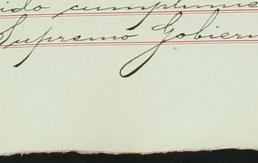 ido cumplime
Supremo Gobiern